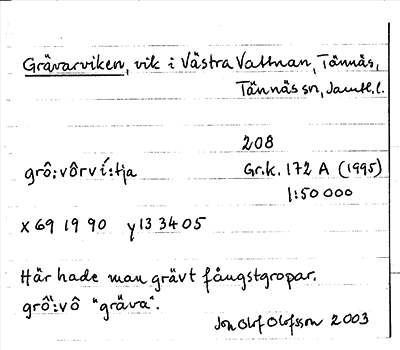 Grävarviken, vik i Västra Vattnan, Tännäs,
Tännäs sn, Jämtl. l.
208
grô:vôrví:tja Gr.k. 172 A (1995)
1:50 000
x 69 19 90 y 13 34 05
Här hade man grävt fångstgropar.
grô":vô "gräva".
Jon Olof Olofsson 2003